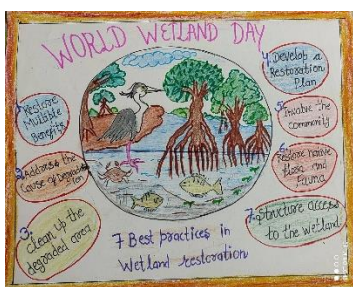 WORLD WETLAND DAY
1. Restore
Multiple
Benefits
2. Address the
Cause of Degradation
3.
clean up the
degraded area
4. Develop a
Restoration
Plan
5.
Involve the
community
6.
Restore native
flora and
Fauna
7. Structure access
to the wetland
7 Best practices in
Wetland restoration